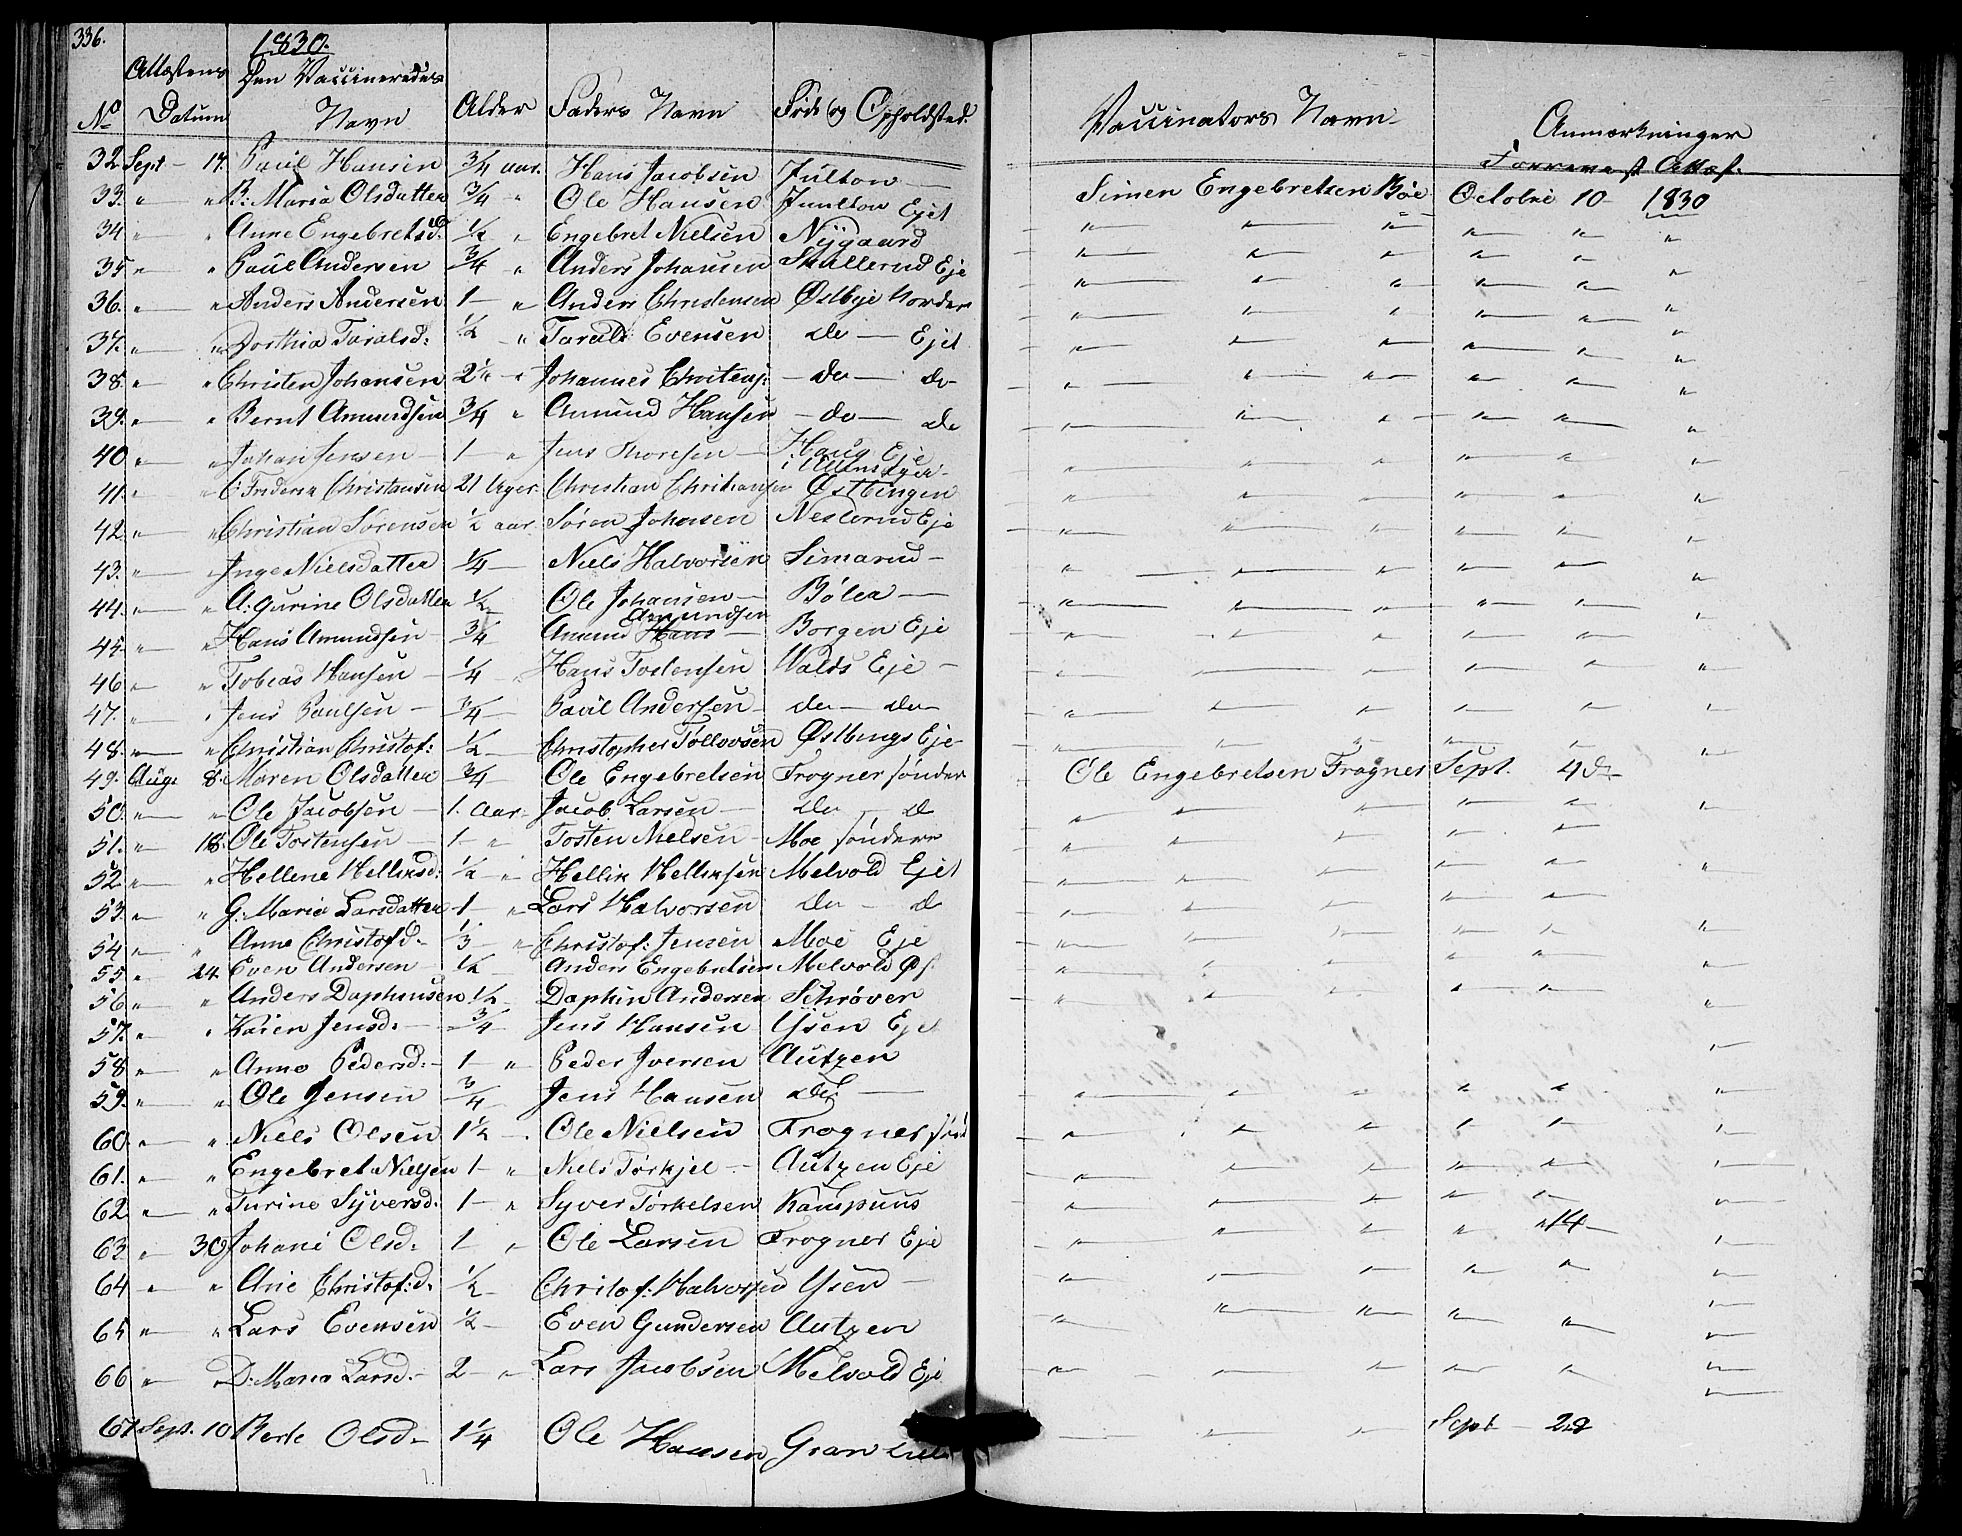 336.
1830.
Attestens Den Vaccineredes
No Datum Navn Alder Faders Navn Føde og Opholdsted Vaccinators Navn Anmærkninger
Attest.
32. Sept - 17. Paul Hansen 3/4 aar. Hans Jacobsen Simen Engebretsen Bøe Octobre 10 - 1830
33. " " B: Maria Olsdatter 3/4 " Ole Hansen Ejet " " " " " "
34 " " Anne Engebretsd: 1/2 " Engebret Nielsen Nygaard " " " " " "
35 " " Paul Andersen 3/4 " Anders Johansen Skullerud Eje " " " " " "
36. " " Anders Andersen 1 - " Anders Christensen Østbye Nordre " " " " " "
37. " " Dorthia Taralsd: 1/2 " Tarald Evensen do - Ejet " " " " " "
38. " " Christen Johansen 2 1/2 " Johannes Christens: - do - do " " " " " "
39. " " Bernt Amundsen 3/4 " Amund Hansen - do - do " " " " " "
40 " " Johan Jensen - 1 " Jens Thoresen - Haug Eje i Ullensager - " " " " " "
41. " " Christiansen 21 Uger. Christian Christiansen Østbingen " " " " " "
42. " " Christian Sørensen 1/2 aar. Søren Johansen Nesterud Eje " " " " " "
43. " " Inge Nielsdatter 1/4 - Niels Halvorsen Simarud - " " " " " "
44. " " A: Gurine Olsdatter 1/2 Ole Johansen - Bøler - " " " " " "
45. " " Hans Amundsen - 3/4 Amund Hans Amundsen - Borgen Eje " " " " "
46 " " Tobias Hansen - 1/4 Hans Tostensen Valds Eje - " " " " " "
47. " " Jens Paulsen - 3/4 - Paul Andersen - do - do " " " " " "
48. " " Christian Christof: 1/2 - Christopher Tollevsen Østbyngs Eje " " " " " "
49. Aug: 8. Maren Olsdatter 3/4 - Ole Engebretsen Frogner søndre Ole Engebretsen Frogner Sept. 4 d -
50. " " Ole Jacobsen - 1. Aar - Jacob Larsen - do - d " " " " " "
51. " 18. Ole Tostensen - 1 - " Tosten Nielsen - Moe søndere " " " " "
52 " " Hellene Helliksd: 1/2 - " Hellik Helliksen Melvold Ejet " " " " " "
53. " " G: Maria Larsdatter 1 - " Lars Halvorsen do - d " " " " "
54 " " Anne Christofd - 1/3 - " Christof: Jensen Moe Eje " " " " " "
55. " 24. Even Andersen - 1/2 - Anders Engebretsen Melvold Øs. " " " " " "
56. " " Anders Daphinsen 1/2 - Daphin Andersen Schrøver " " " " " "
57. " " Karen Jensd: - 3/4 - Jens Hansen Ysen Eje
58. " " Anne Pedersd: - 1 - " Peder Iversen Autzen
59. " " Ole Jensen 3/4 - Jens Hansen do - " " " " " "
60 " " Niels Olsen 1 1/2 - Ole Nielsen Frogner sønd " " " " " "
61. " " Engebret Nielsen 1 - " Niels Torkjel - Autzen Eje " " " " "
62 " " Turine Syversd: 1 - " Syver Torkelsen " " " " " "
63 " 30 Johane Olsd - 1 - " Ole Larsen Frogner Eje " " " " " 14 -
64 " " Ane Christof:d. 1/2 - Christof: Halvorsen Ysen - " " " " " "
65 " " Lars Evensen 1/2 - Even Gundersen Autzen " " " " " "
66 " " D: Maria Larsd. - 2 - " Lars Jacobsen Melvold Eje " " " " " "
67 Sept. 10 Berte Olsd - 1 1/4 Ole Hansen Gran - " " Sept - 22